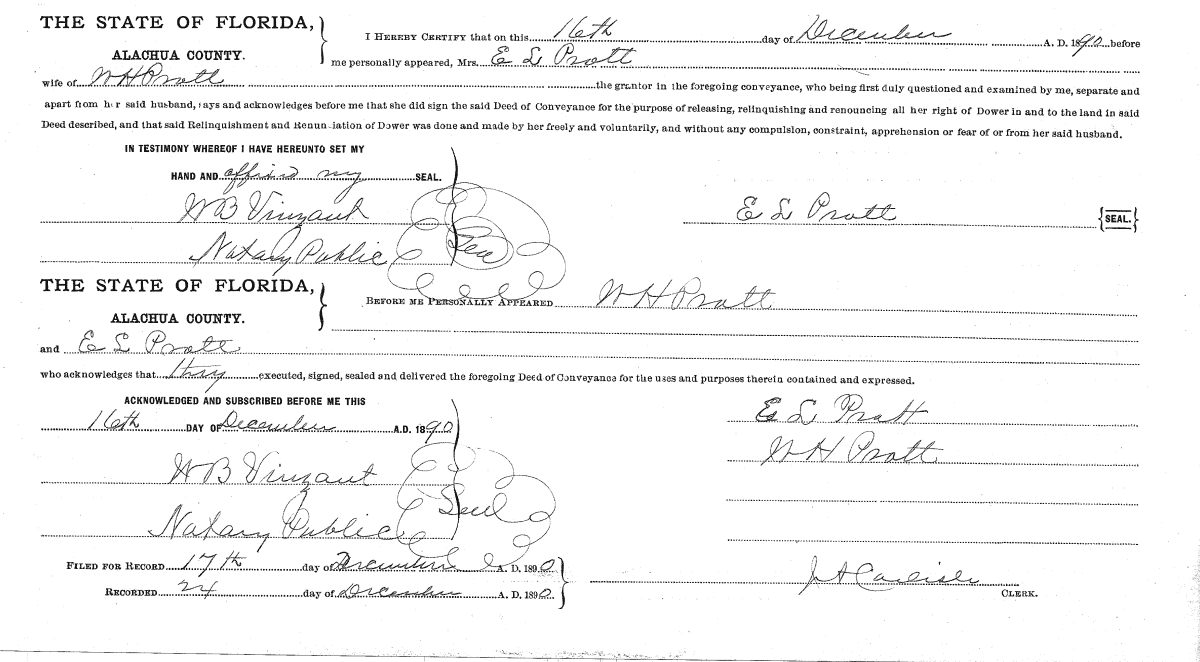 THE STATE OF FLORIDA,
ALACHUA COUNTY.
I HEREBY CERTIFY that on this 16th day of December A. D. 1890 before
me personally appeared, Mrs. E L Pratt
wife of W H Pratt the grantor in the foregoing conveyance, who being first duly questioned and examined by me, separate and
apart from her said husband, says and acknowledges before me that she did sign the said Deed of Conveyance for the purpose of releasing, relinquishing and renouncing all her right of Dower in and to the land in said
Deed described, and that said Relinquishment and Renunciation of Dower was done and made by her freely and voluntarily, and without any compulsion, constraint, apprehension or fear of or from her said husband.
IN TESTIMONY WHEREOF I HAVE HEREUNTO SET MY
HAND AND official my SEAL.
W B Vinzant
E L Pratt {SEAL.}
Notary Public Seal
THE STATE OF FLORIDA,
ALACHUA COUNTY.
BEFORE ME PERSONALLY APPEARED W H Pratt
and E L Pratt
who acknowledges that they executed, signed, sealed and delivered the foregoing Deed of Conveyance for the uses and purposes therein contained and expressed.
ACKNOWLEDGED AND SUBSCRIBED BEFORE ME THIS
16th DAY OF December A.D. 1890
E L Pratt
W H Pratt
W B Vinzant
Seal
Notary Public
FILED FOR RECORD 17th day of December A. D. 1890
RECORDED 24 day of December A. D. 1890
Carlisle
CLERK.